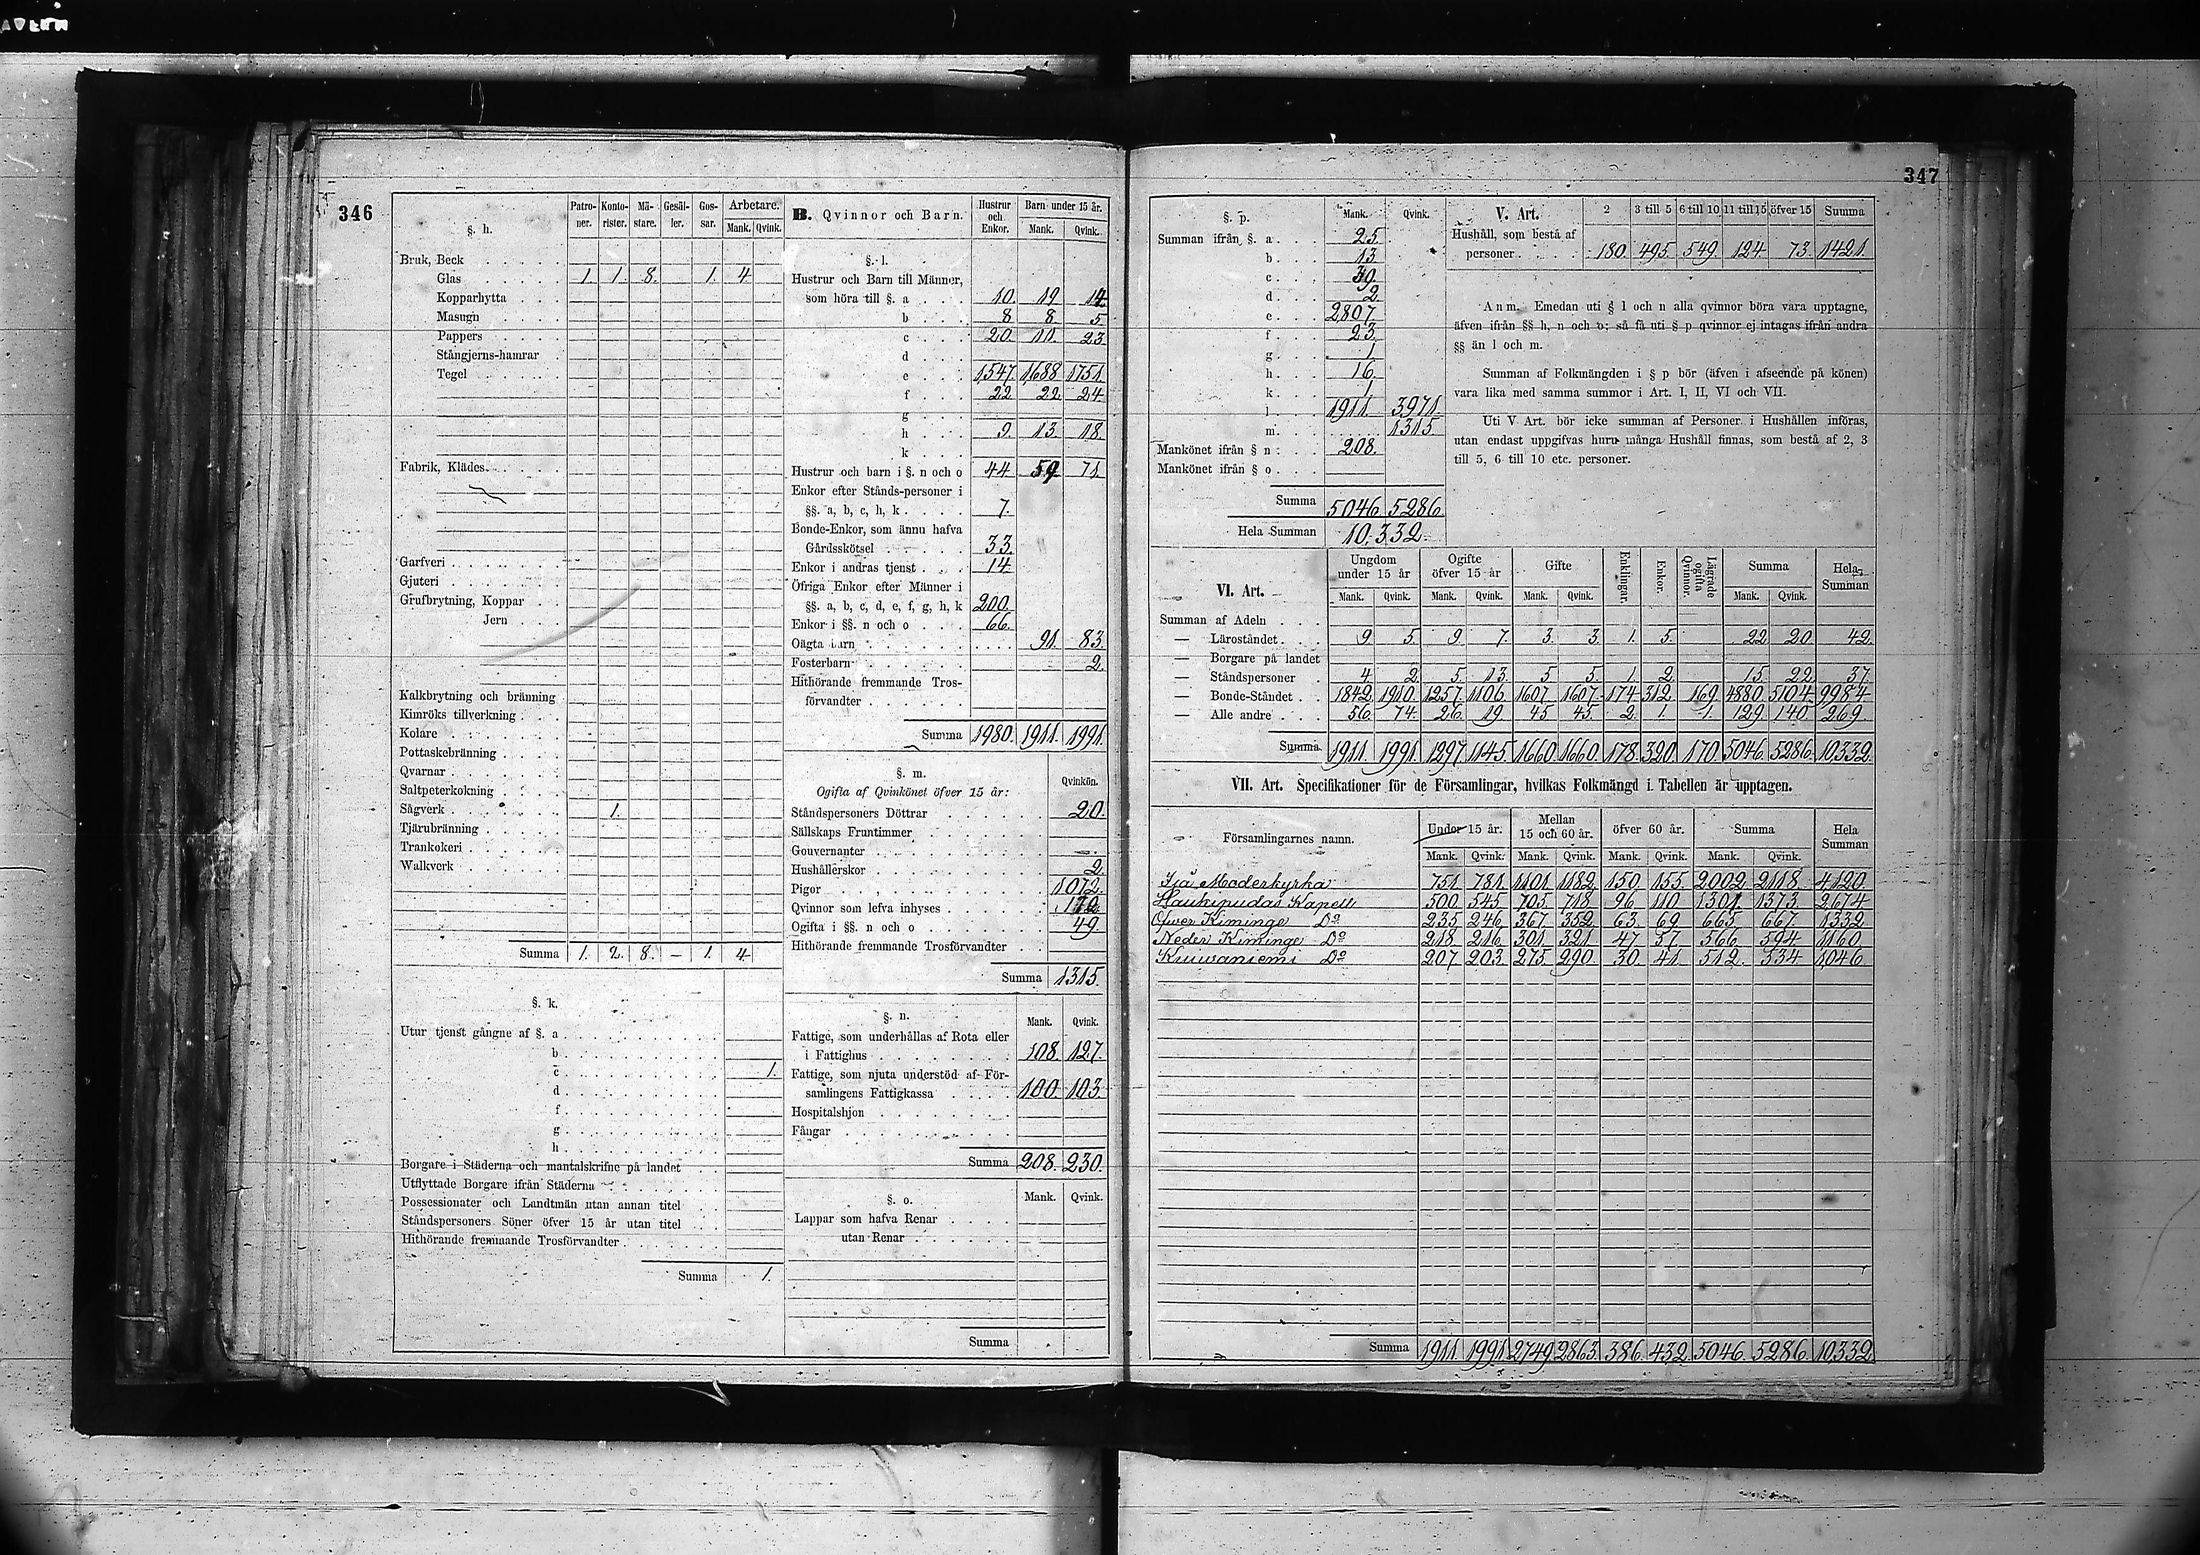 346
§. h.
Patroner. Kontorister. Mästare. Gesäller. Gossar. Arbetare.
Mank. Qvink.
Bruk, Beck
Glas 1. 1. 8. 1. 4.
Kopparhytta
Masugn
Pappers
Stångjerns-hamrar
Tegel
Fabrik, Klädes
Garfveri
Gjuteri
Grufbrytning, Koppar
Jern
Kalkbrytning och bränning
Kimröks tillverkning
Kolare
Pottaskebränning
Qvarnar
Saltpeterkokning
Sågverk 1.
Tjärubränning
Trankokeri
Walkverk
Summa 1. 2. 8. – 1. 4.
§. k.
Utur tjenst gångne af §. a
b
c 1.
d
f
g
h
Borgare i Städerna och mantalskrifne på landet
Utflyttade Borgare ifrån Städerna
Possessionater och Landtmän utan annan titel
Ståndspersoners Söner öfver 15 år utan titel
Hithörande fremmande Trosförvandter
Summa 1.
B. Qvinnor och Barn.
Hustrur och Enkor. Barn under 15 år.
Mank. Qvink.
§. l.
Hustrur och Barn till Männer,
som höra till §. a 10. 19 14
b 8 8 5
c 20. 11. 23
d
e 1,547. 1,688 1751.
f 22 22 24
g
h 9. 13. 18.
k
Hustrur och barn i §. n och o 44 59 71
Enkor efter Stånds-personer i
§§. a, b, c, h, k 7.
Bonde-Enkor, som ännu hafva
Gårdsskötsel 33.
Enkor i andras tjenst 14
Öfriga Enkor efter Männer i
§§. a, b, c, d, e, f, g, h, k 200.
Enkor i §§. n och o 66.
Oägta barn 91. 83.
Fosterbarn 2.
Hithörande fremmande Tros-
förvandter
Summa 1980. 1911. 1991.
§. m. Qvinkön.
Ogifta af Qvinkönet öfver 15 år:
Ståndspersoners Döttrar 20.
Sällskaps Fruntimmer
Gouvernanter –.
Hushållerskor 2.
Pigor 1072.
Qvinnor som lefva inhyses 172.
Ogifta i §§. n och o 49.
Hithörande fremmande Trosförvandter
Summa 1315.
§. n. Mank. Qvink.
Fattige, som underhållas af Rota eller
i Fattighus 108. 127.
Fattige, som njuta understöd af För-
samlingens Fattigkassa 100. 103.
Hospitalshjon
Fångar
Summa 208. 230.
§. o. Mank. Qvink.
Lappar som hafva Renar
utan Renar
Summa
347
§. p. Mank. Qvink.
Summan ifrån §. a 25.
b 13
c 39.
d 2
e 2807
f 23.
g 1
h 16.
k 1
l 1911. 3971.
m. 1315.
Mankönet ifrån § n 208.
Mankönet ifrån § o
Summa 5046. 5286.
Hela Summan 10.332.
V. Art. 2 3 till 5 6 till 10 11 till 15 öfver 15 Summa
Hushåll, som bestå af
personer 180. 495. 549. 124. 73. 1421.
Anm. Emedan uti § l och n alla qvinnor böra vara upptagne,
äfven ifrån §§ h, n och o; så få uti § p qvinnor ej intagas ifrån andra
§§ än l och m.
Summan af Folkmängden i § p bör (äfven i afseende på könen)
vara lika med samma summor i Art. I, II, VI och VII.
Uti V Art. bör icke summan af Personer i Hushållen införas,
utan endast uppgifvas huru många Hushåll finnas, som bestå af 2, 3
till 5, 6 till 10 etc. personer.
VI. Art.
Ungdom under 15 år Ogifte öfver 15 år Gifte Enklingar. Enkor. Lägrade ogifta Qvinnor. Summa Hela Summan
Mank. Qvink. Mank. Qvink. Mank. Qvink. Mank. Qvink.
Summan af Adeln
— Läroståndet 9. 5. 9. 7. 3. 3. 1. 5. 22 20 42.
— Borgare på landet
— Ståndspersoner 4 2. 5. 13. 5 5. 1 2. 15. 22 37.
— Bonde-Ståndet 1842. 1910. 1257. 1106. 1607. 1607. 174. 312. 169. 4880. 5104. 9984.
— Alle andre 56. 74. 26. 19. 45 45. 2. 1. 1. 129. 140 269.
Summa 1911. 1991. 1297. 1145. 1660. 1660. 178. 320. 170. 5046. 5286. 10,332.
VII. Art. Specifikationer för de Församlingar, hvilkas Folkmängd i Tabellen är upptagen.
Församlingarnes namn. Under 15 år. Mellan 15 och 60 år. öfver 60 år. Summa Hela Summan
Mank. Qvink. Mank. Qvink. Mank. Qvink. Mank. Qvink.
Ijå Moderkyrka 751. 781. 1101. 1182. 150. 155. 2002. 2118. 4120.
Haukipudas Kapell 500 545 705 718 96 110 1301 1373. 2674
Öfver Kiminge Do 235 246 367 352 63. 69. 665. 667. 1332
Neder Kiminge Do 218 216 301 321 47 57. 566 594. 1160.
Kuivaniemi Do 207 203 275 290. 30. 41. 512. 534 1,046
Summa 1911 1991. 2749. 2863. 386. 432. 5046. 5286. 10,332.